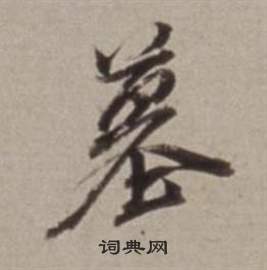 墓
词典网